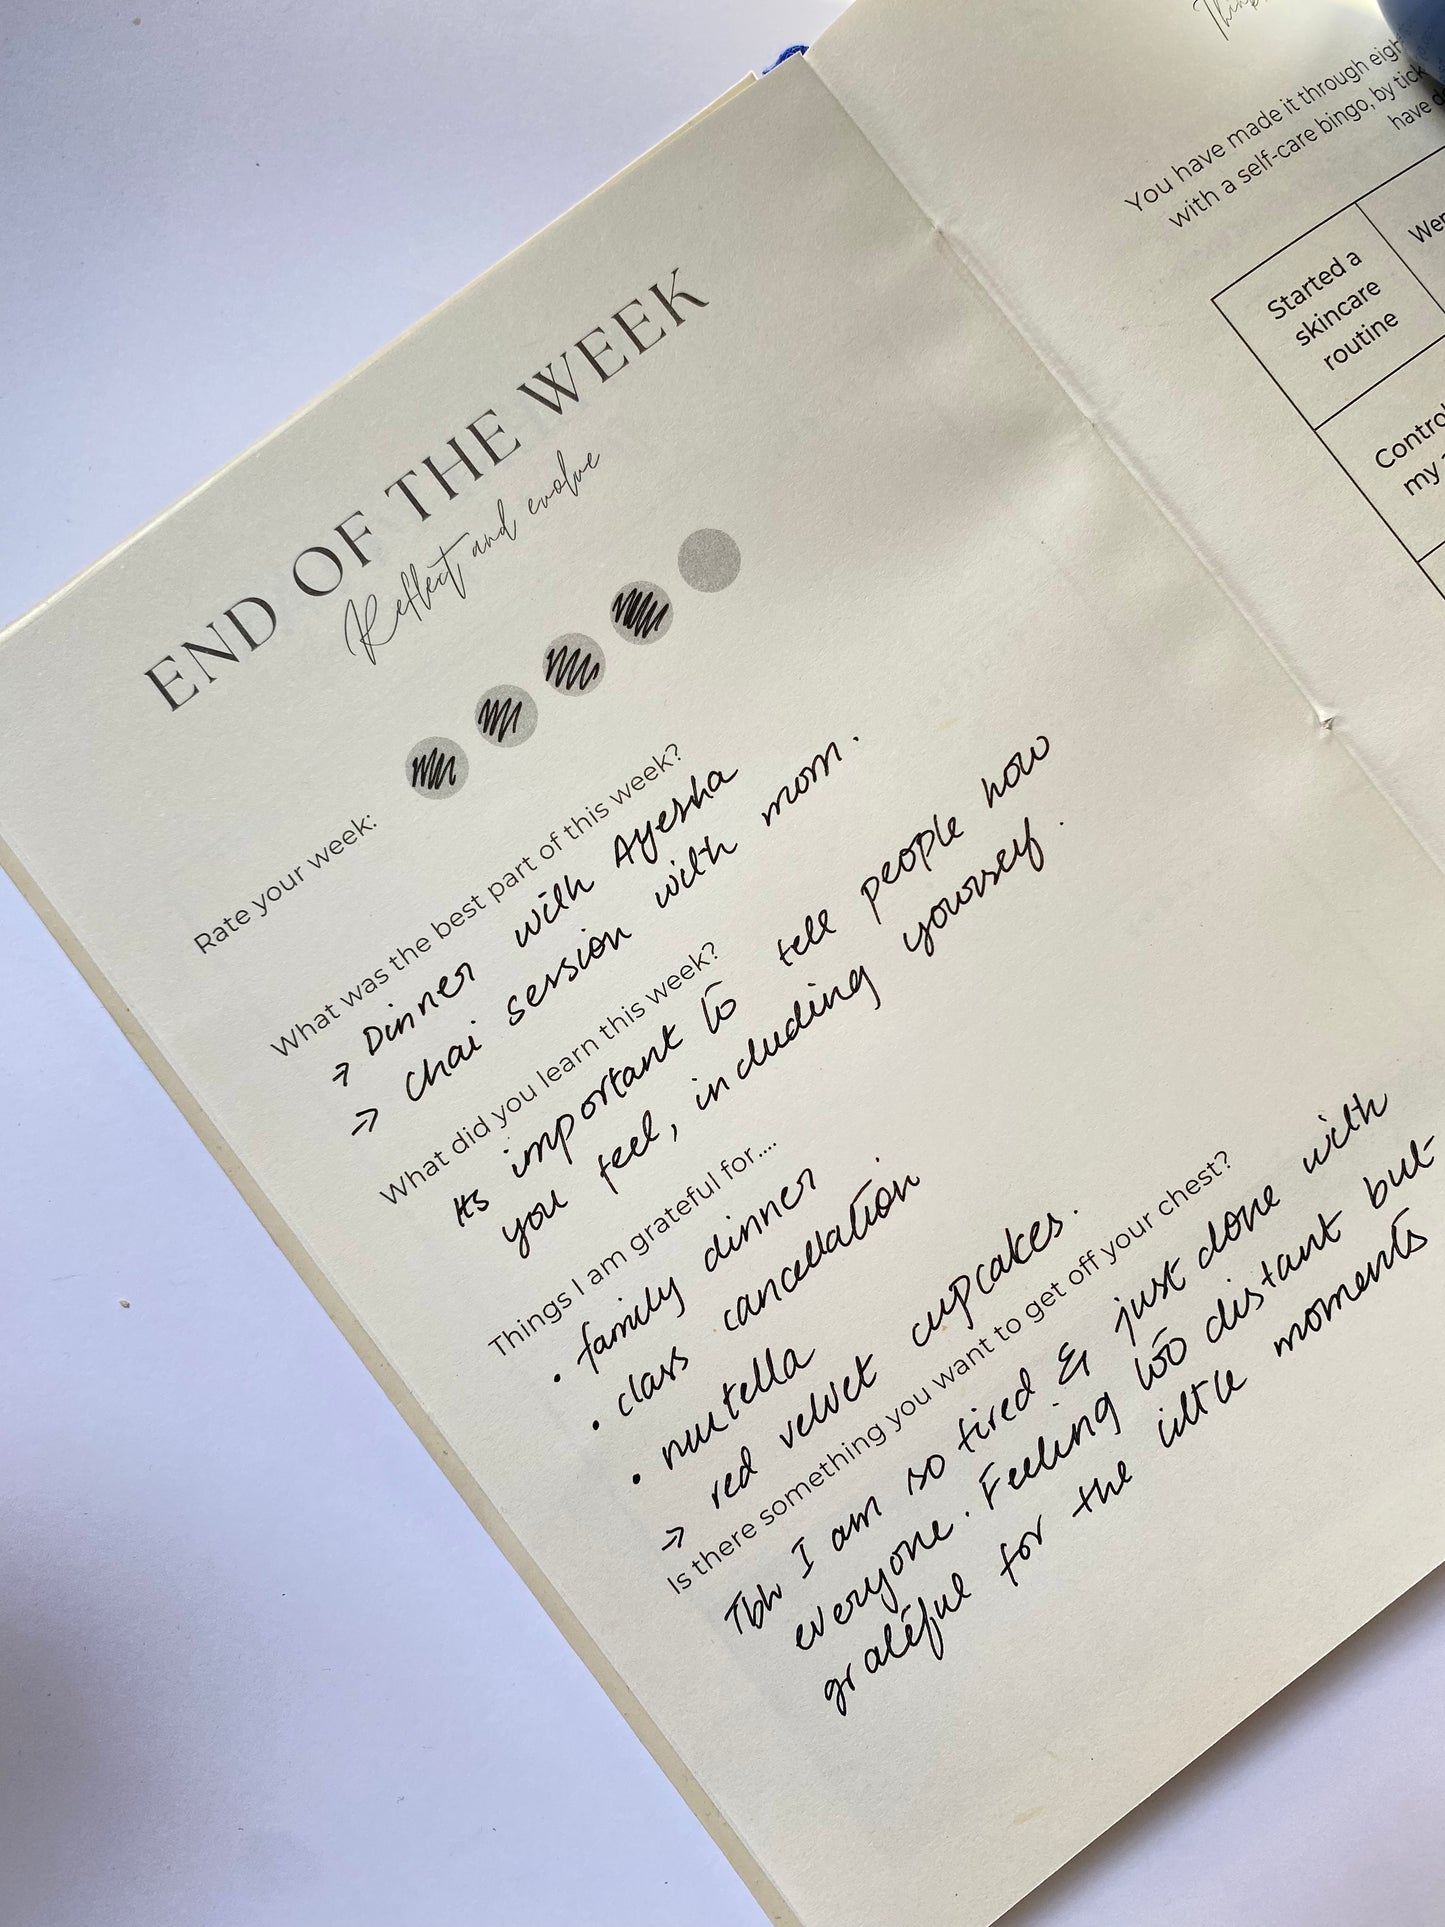 END OF THE WEEK
Reflect and evolve
Rate your week:
What was the best part of this week?
→ Dinner with Ayesha
→ Chai session with mom.
What did you learn this week?
Its important to tell people how
you feel, including yourself.
Things I am grateful for....
• family dinner
• class cancellation
• nutella
→ red velvet cupcakes.
Is there something you want to get off your chest?
Tbh I am so tired & just done with
everyone. Feeling too distant but
grateful for the little moments
You have made it through
with a self-care bingo, by
have
Started a
skincare
routine
my